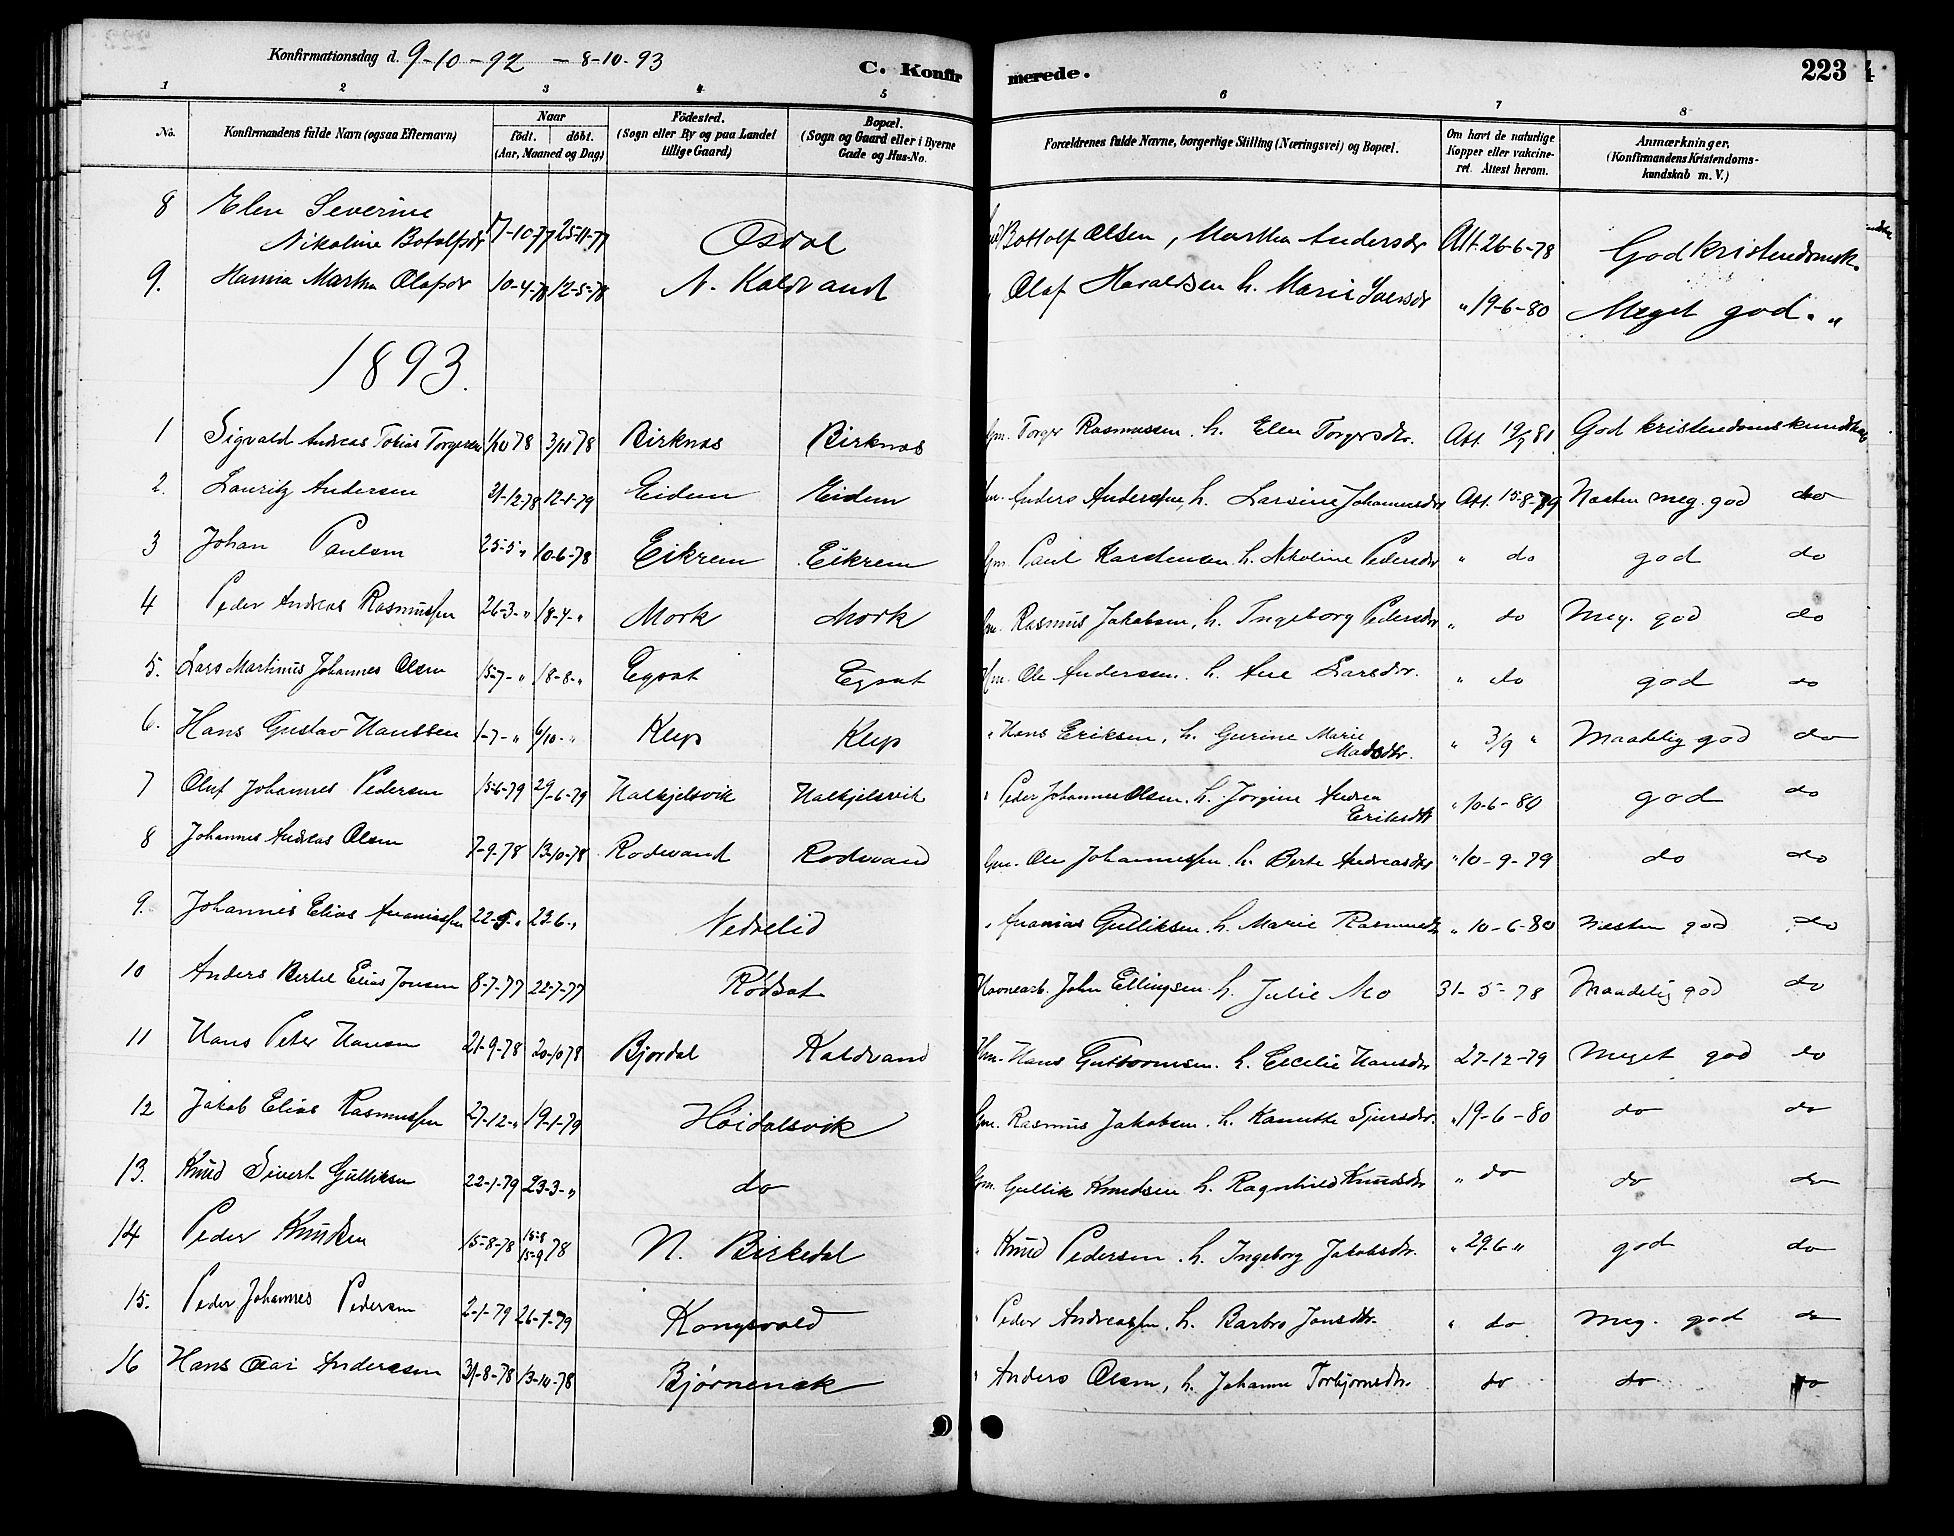 Konfirmationsdag d. 9-10-92 - 8-10-93
C. Konfirmerede.
223
1 2 3 4 5 6 7 8
No.
Konfirmandens fulde Navn (ogsaa Efternavn)
Naar
født. døbt.
(Aar, Maaned og Dag)
Fødested.
(Sogn eller By og paa Landet
tillige Gaard)
Bopæl.
(Sogn og Gaard eller i Byerne
Gade og Hus-No.
Forældrenes fulde Navne, borgerlige Stilling (Næringsvei) og Bopæl.
Om havt de naturlige
Kopper eller vakcine-
ret. Attest herom.
Anmærkninger.
(Konfirmandens Kristendoms-
kundskab m. V.)
8 Elen Severine
Nikoline Botolfsdr 17-10-77 25-11-77 Osdal Bottolf Olsen, Martha Andersdr Att. 26-6-78 God kristendomsk.
9. Hanna Martha Olafsdr 10-4-78 12-5-78 N. Kaldvand Olaf Haraldsen h. Marie Iversdr " 19-6-80 Meget god. "
1893.
1 Sigvald Andreas Tobias Torgersen 1/10 78 3/11 78 Birknæs Birknæs Gm. Torger Rasmussen. h. Elen Torgersdr. Att. 19/9 81. God kristendomskundskab
2. Lauritz Andersen 31-12-78 12-1-79 Eidem Eidem Gm. Anders Anderssen, h. Larsine Johannesdr Att. 15-8-79 Næsten meg. god do
3 Johan Paulsen 25-5-" 10-6-78 Eikrem Eikrem Gm. Paul Karstensen h. Nikoline Pedersdr " do god do
4 Peder Andreas Rasmussen 26-3-" 18-4-" Mork Mork Gm. Rasmus Jakobsen, h. Ingeborg Pedersdr " do Meg. god do
5. Lars Martinus Johannes Olsen 15-7-" 18-8-" Egsæt Egsæt Hm. Ole Andersen. h. Ane Larsdr. " do god do
6. Hans Gustav Hanssen 1-7-" 6/10-" Klep Klep " Hans Eriksen, h. Gurine Marie
Madsdtr. " 3/9 " Maadelig god do
7 Oluf Johannes Pedersen 15-6-79 29-6-79 Halkjelsvik Halkjelsvik " Peder Johannes Olsen. h. Jorgine Andrea
Eriksdtr " 10-6-80 god do
8 Johannes Andreas Olsen 7-9-78 13-10-78 Rodvand Rodvand Gm. Ole Johannessen h. Berte Andreasdtr " 10-9-79 do do
9. Johannes Elias Ananiassen 22-5-" 23-6-" Nedrelid " Ananias Gulliksen. h. Marie Rasmusdtr " 10-6-80 næsten god do
10 Anders Bertel Elias Jonsen 8-7-77 22-7-77 Rodsæt Havnearb. John Ellingsen h. Julie Mo 31-5-78 Maadelig god do
11 Hans Peter Hansen 21-9-78 20-10 78 Bjordal Kaldvand Hm. Hans Guttormsen. h. Cecilie Hansdtr 27-12-79 Meget god do
12 Jakob Elias Rasmussen 27-12-" 19-1-79 Høidalsvik Gm. Rasmus Jakobsen. h. Kanutte Sjursdtr. " 19-6-80 do do
13. Knud Sivert Gulliksen 22-1-79 23-3-" do Gm. Gullik Knudsen h. Ragnhild Knudsdtr " do do do
14 Peder Knudsen 15-8-78 15-8 15-9 78 N. Birkedal " Knud Pedersen. h. Ingeborg Jakobsdr. " 29-6 " god do
15. Peder Johannes Pedersen 2-1-79 26-1-79 Kongsvold " Peder Andreassen, h. Barbro Jonsdtr. " do Meg. god do
16 Hans Anderssen 31-8-78 13-10-78 Bjørnenak " Anders Olsen, h. Johanne Torbjornsdtr. do do do